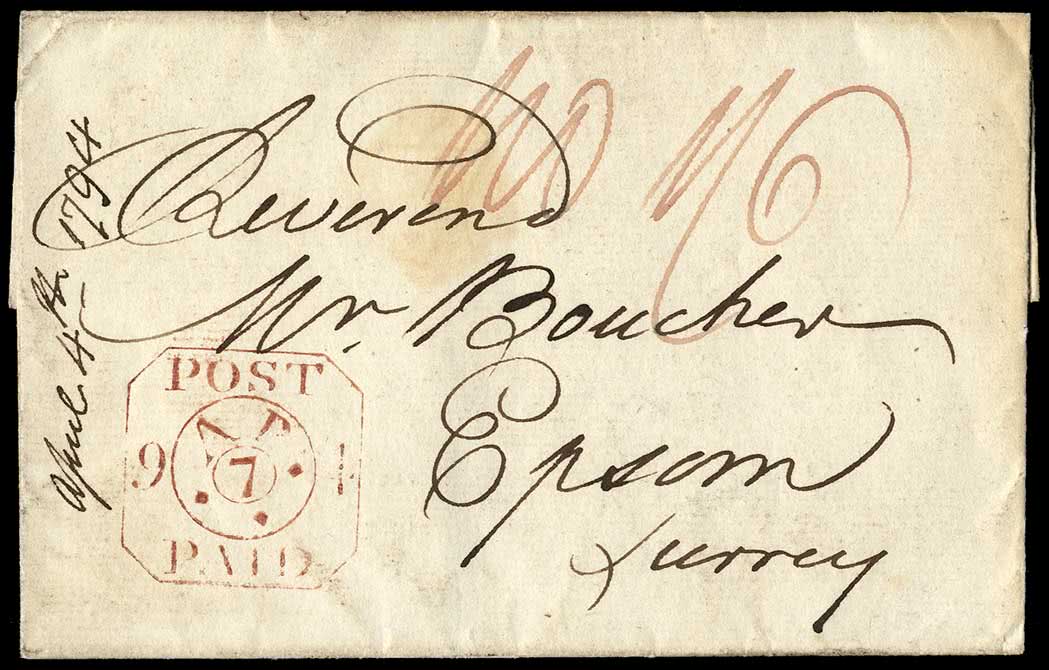 Reverend
Mr. Boucher
Epsom
Surrey
April 4th 1794
POST
9 AP 7 4
PAID